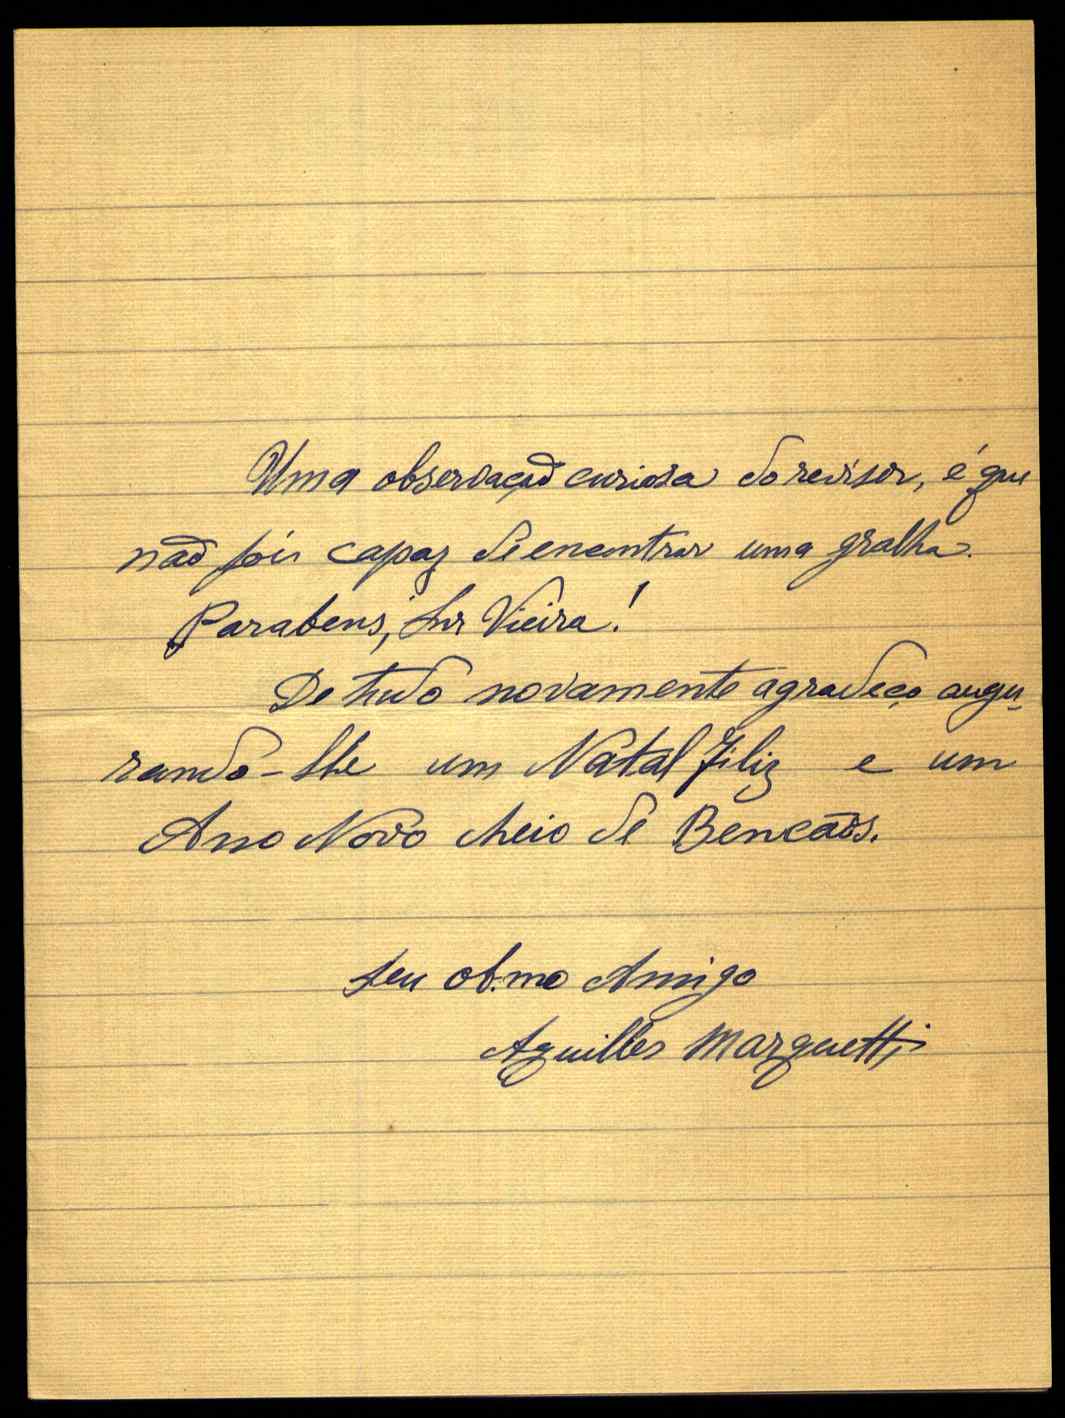 Uma observação curiosa do revisor, é que
não foi capaz de encontrar uma gralha.
Parabens, Snr Vieira!
De tudo novamente agradeço augu-
rando-lhe um Natal Feliz e um
Ano Novo cheio de Bencãos.
Seu ob.mo Amigo
Aquilles Marquetti